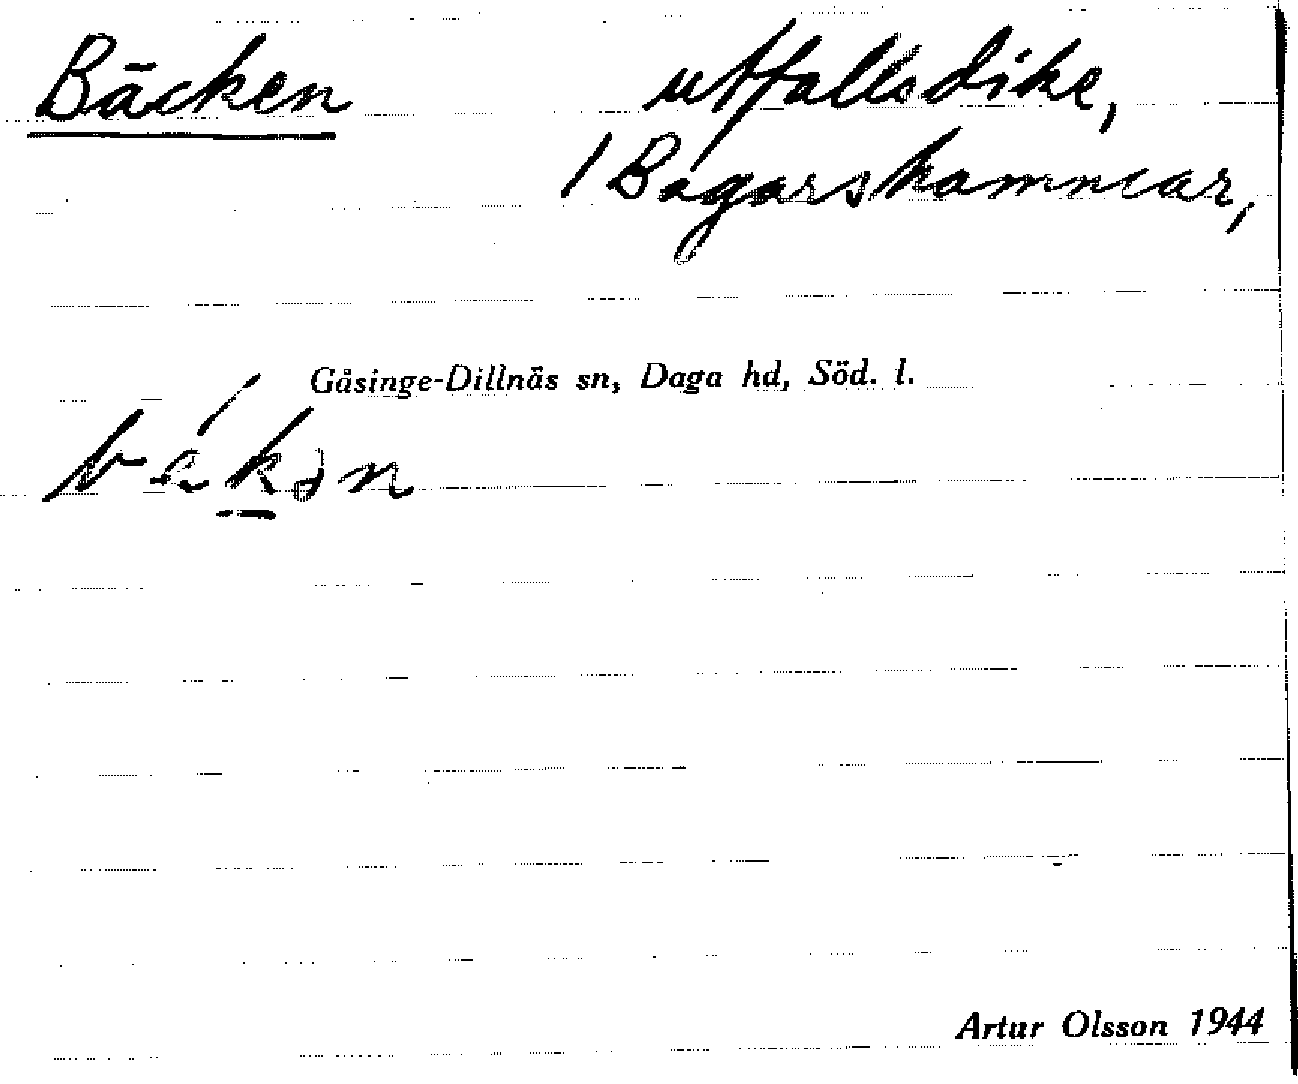 Bäcken
utfallsdike,
/ Bagarshamncar,
Gåsinge-Dillnäs sn, Daga hd, Söd. l.
Artur Olsson 1944